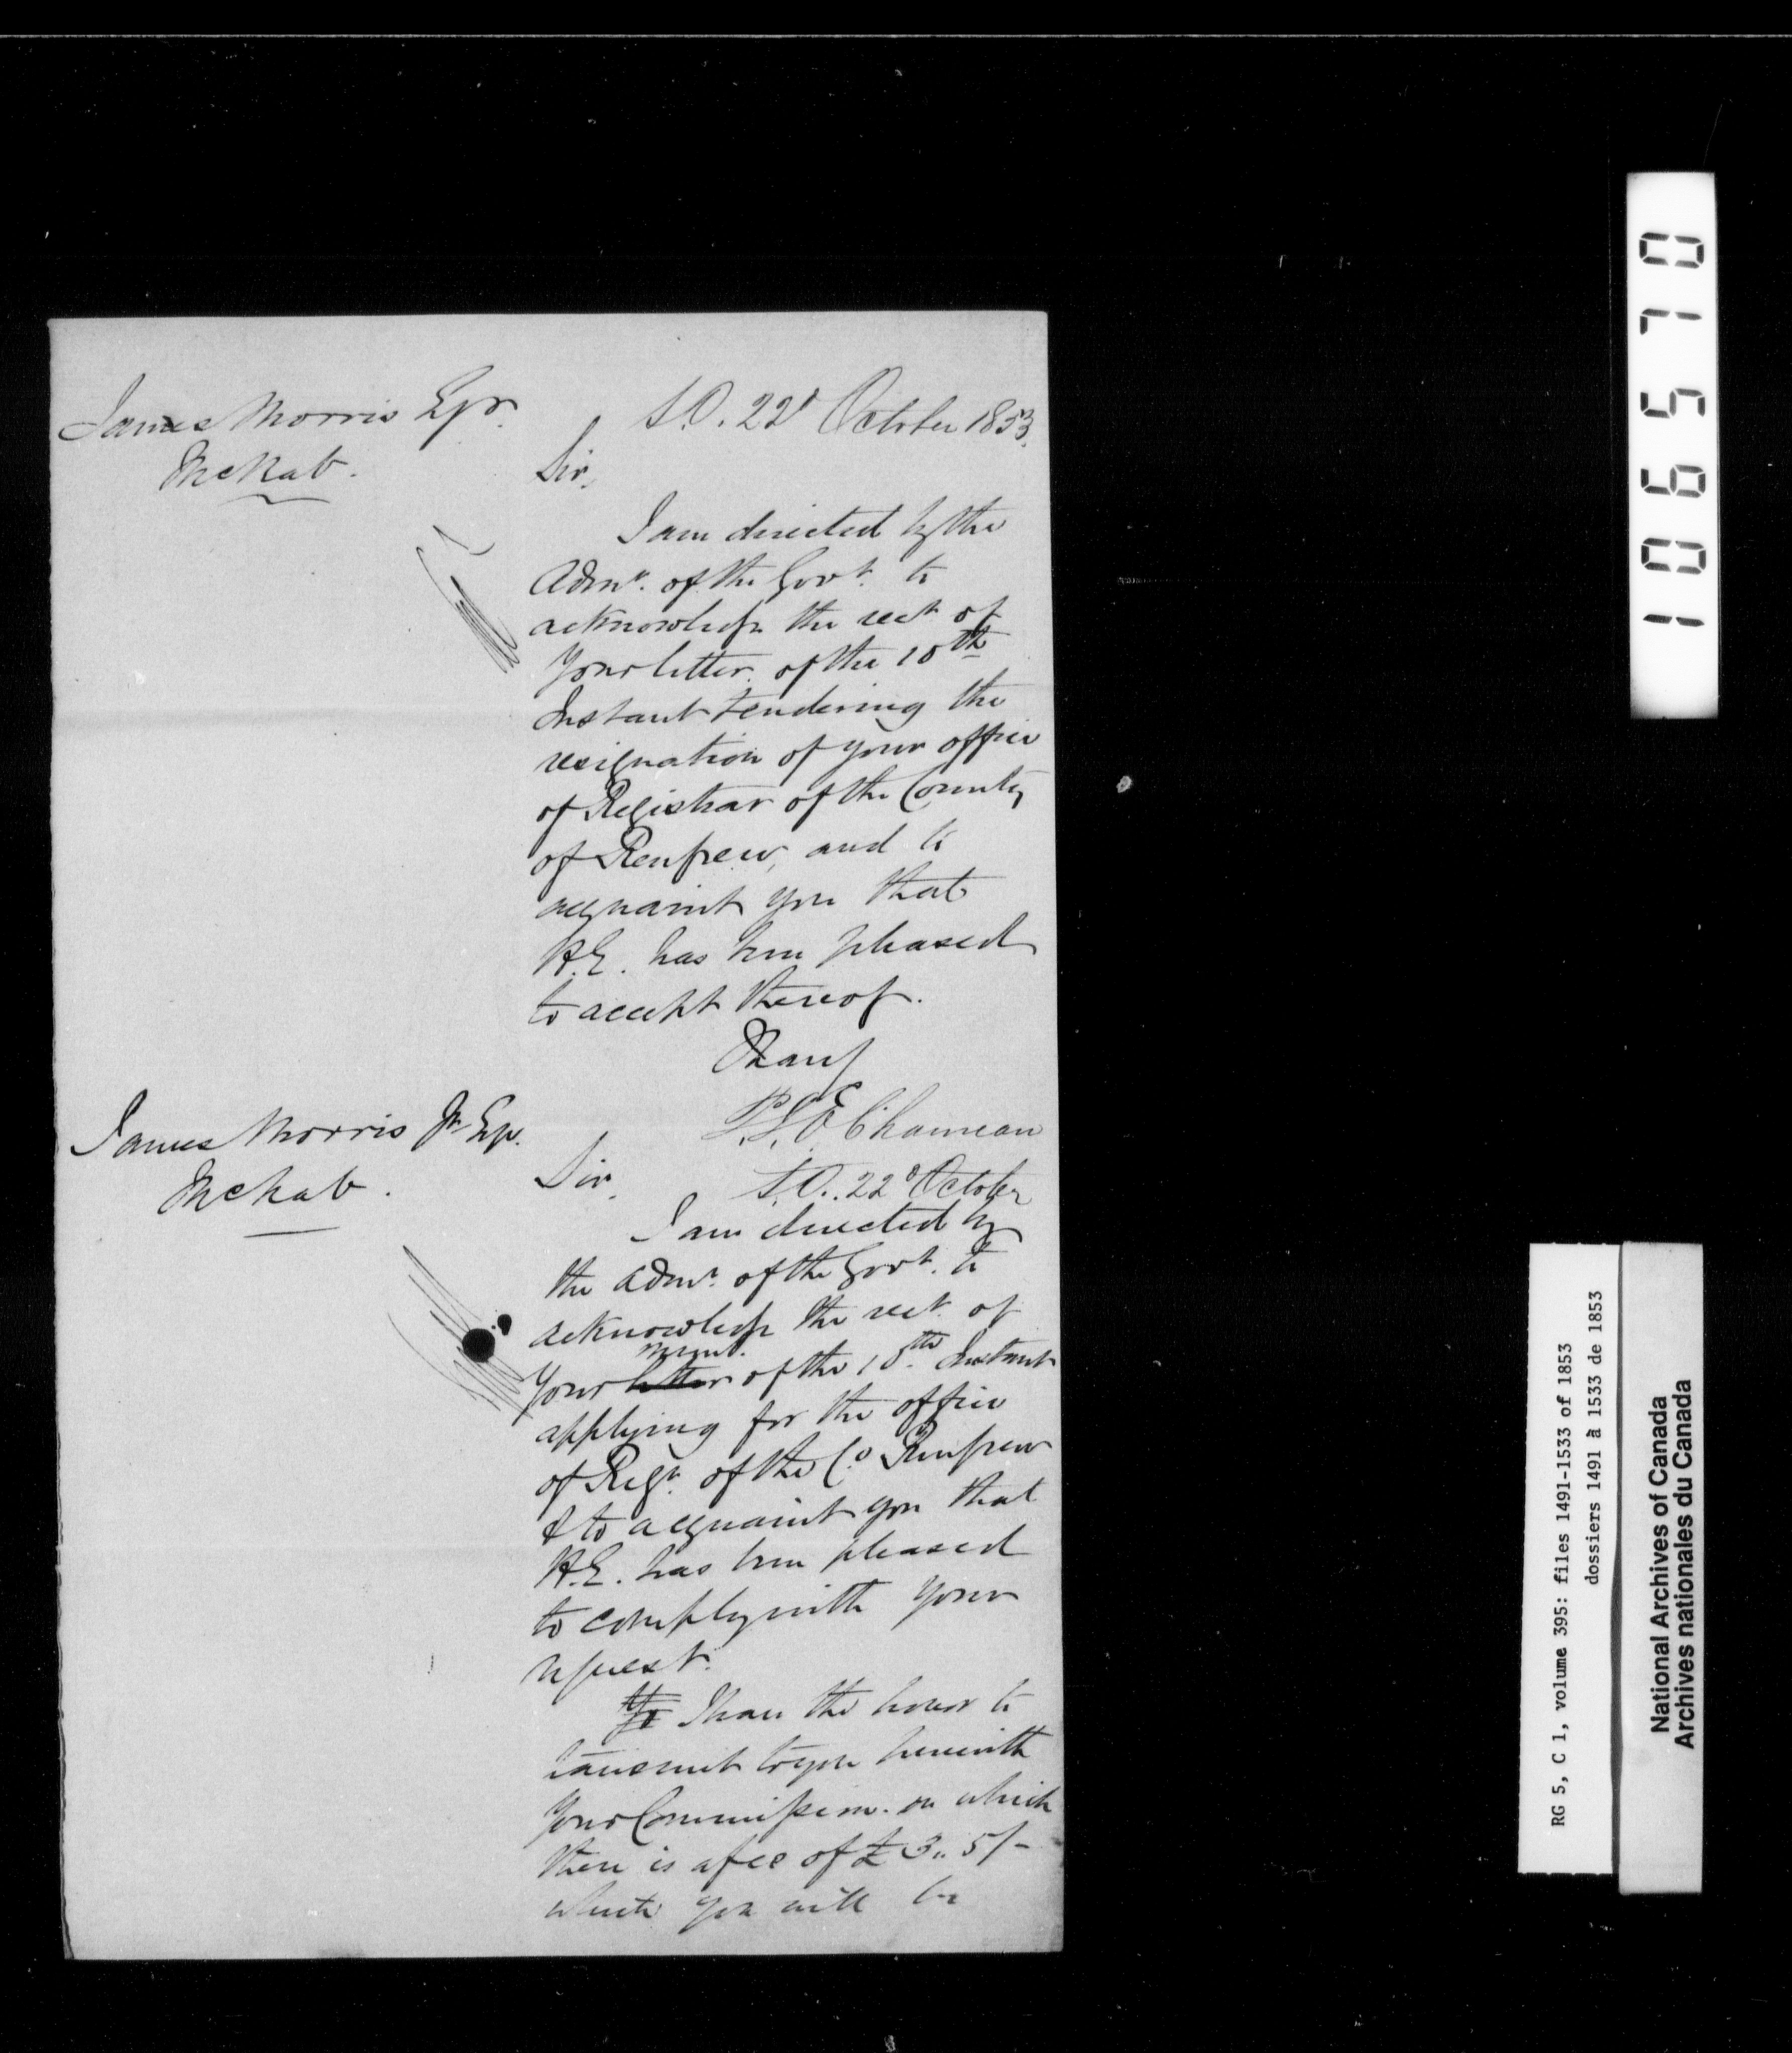 James Morris Esqr.
McNab.
S.O. 22d October 1853.
Sir,
I am directed by the
Admr. of the Govt. to
acknowledge the rect. of
your letter of the 10th
Instant tendering the
resignation of your office
of Registrar of the County
of Renfrew, and to
acquaint you that
H.E. has been pleased
to accept thereof.
I have
James Morris Jr. Esqr.
McNab.
Sir,
S.O. 22d October
I am directed by
the Admr. of the Govt. to
acknowledge the rect. of
meml.
your letter of the 10th Instant
applying for the office
of Regr. of the Co. Renfrew
& to acquaint you that
H.E. has been pleased
to comply with your
request.
I have the honor to
transmit to you herewith
your Commission on which
there is a fee of £3.. 5/-
which you will be
1065710
RG 5, C 1, volume 395: files 1491-1533 of 1853
dossiers 1491 à 1533 de 1853
National Archives of Canada
Archives nationales du Canada